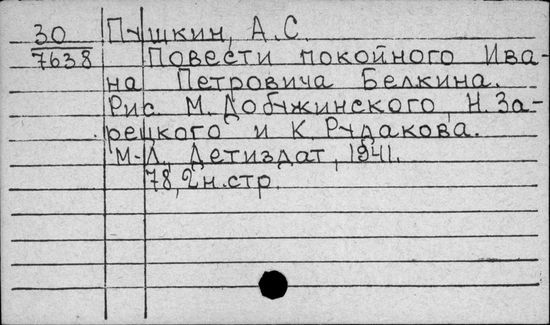 30 Пушкин, А.С.
7638 Повести покойного Ива-
на Петровича Белкина.
Рис. М. Добужинского, Н. За-
рецкого и К. Рудакова.
М-Л., Детиздат, 1941.
78, 2 н. стр.